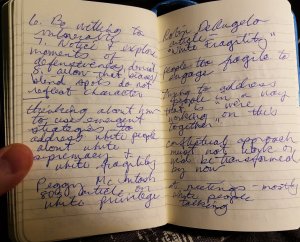 6. Be willing to
vulnerability
7. Notice & explore
moments of
defensiveness, denial
8. allow that biases,
blind spots do not
reflect character
thinking about how
to use emergent
strategies to
address white people
about white
supremacy &
white fragility
Peggy McIntosh
80s article on
white privilege
Robin DeAngelo
article -
"White Fragility"
people too fragile to
engage
Trying to address
people in a way
that "we're
working on this
together"
conceptual approach
must not work or
we'd be transformed
by now
at meetings - mostly
white people
speaking